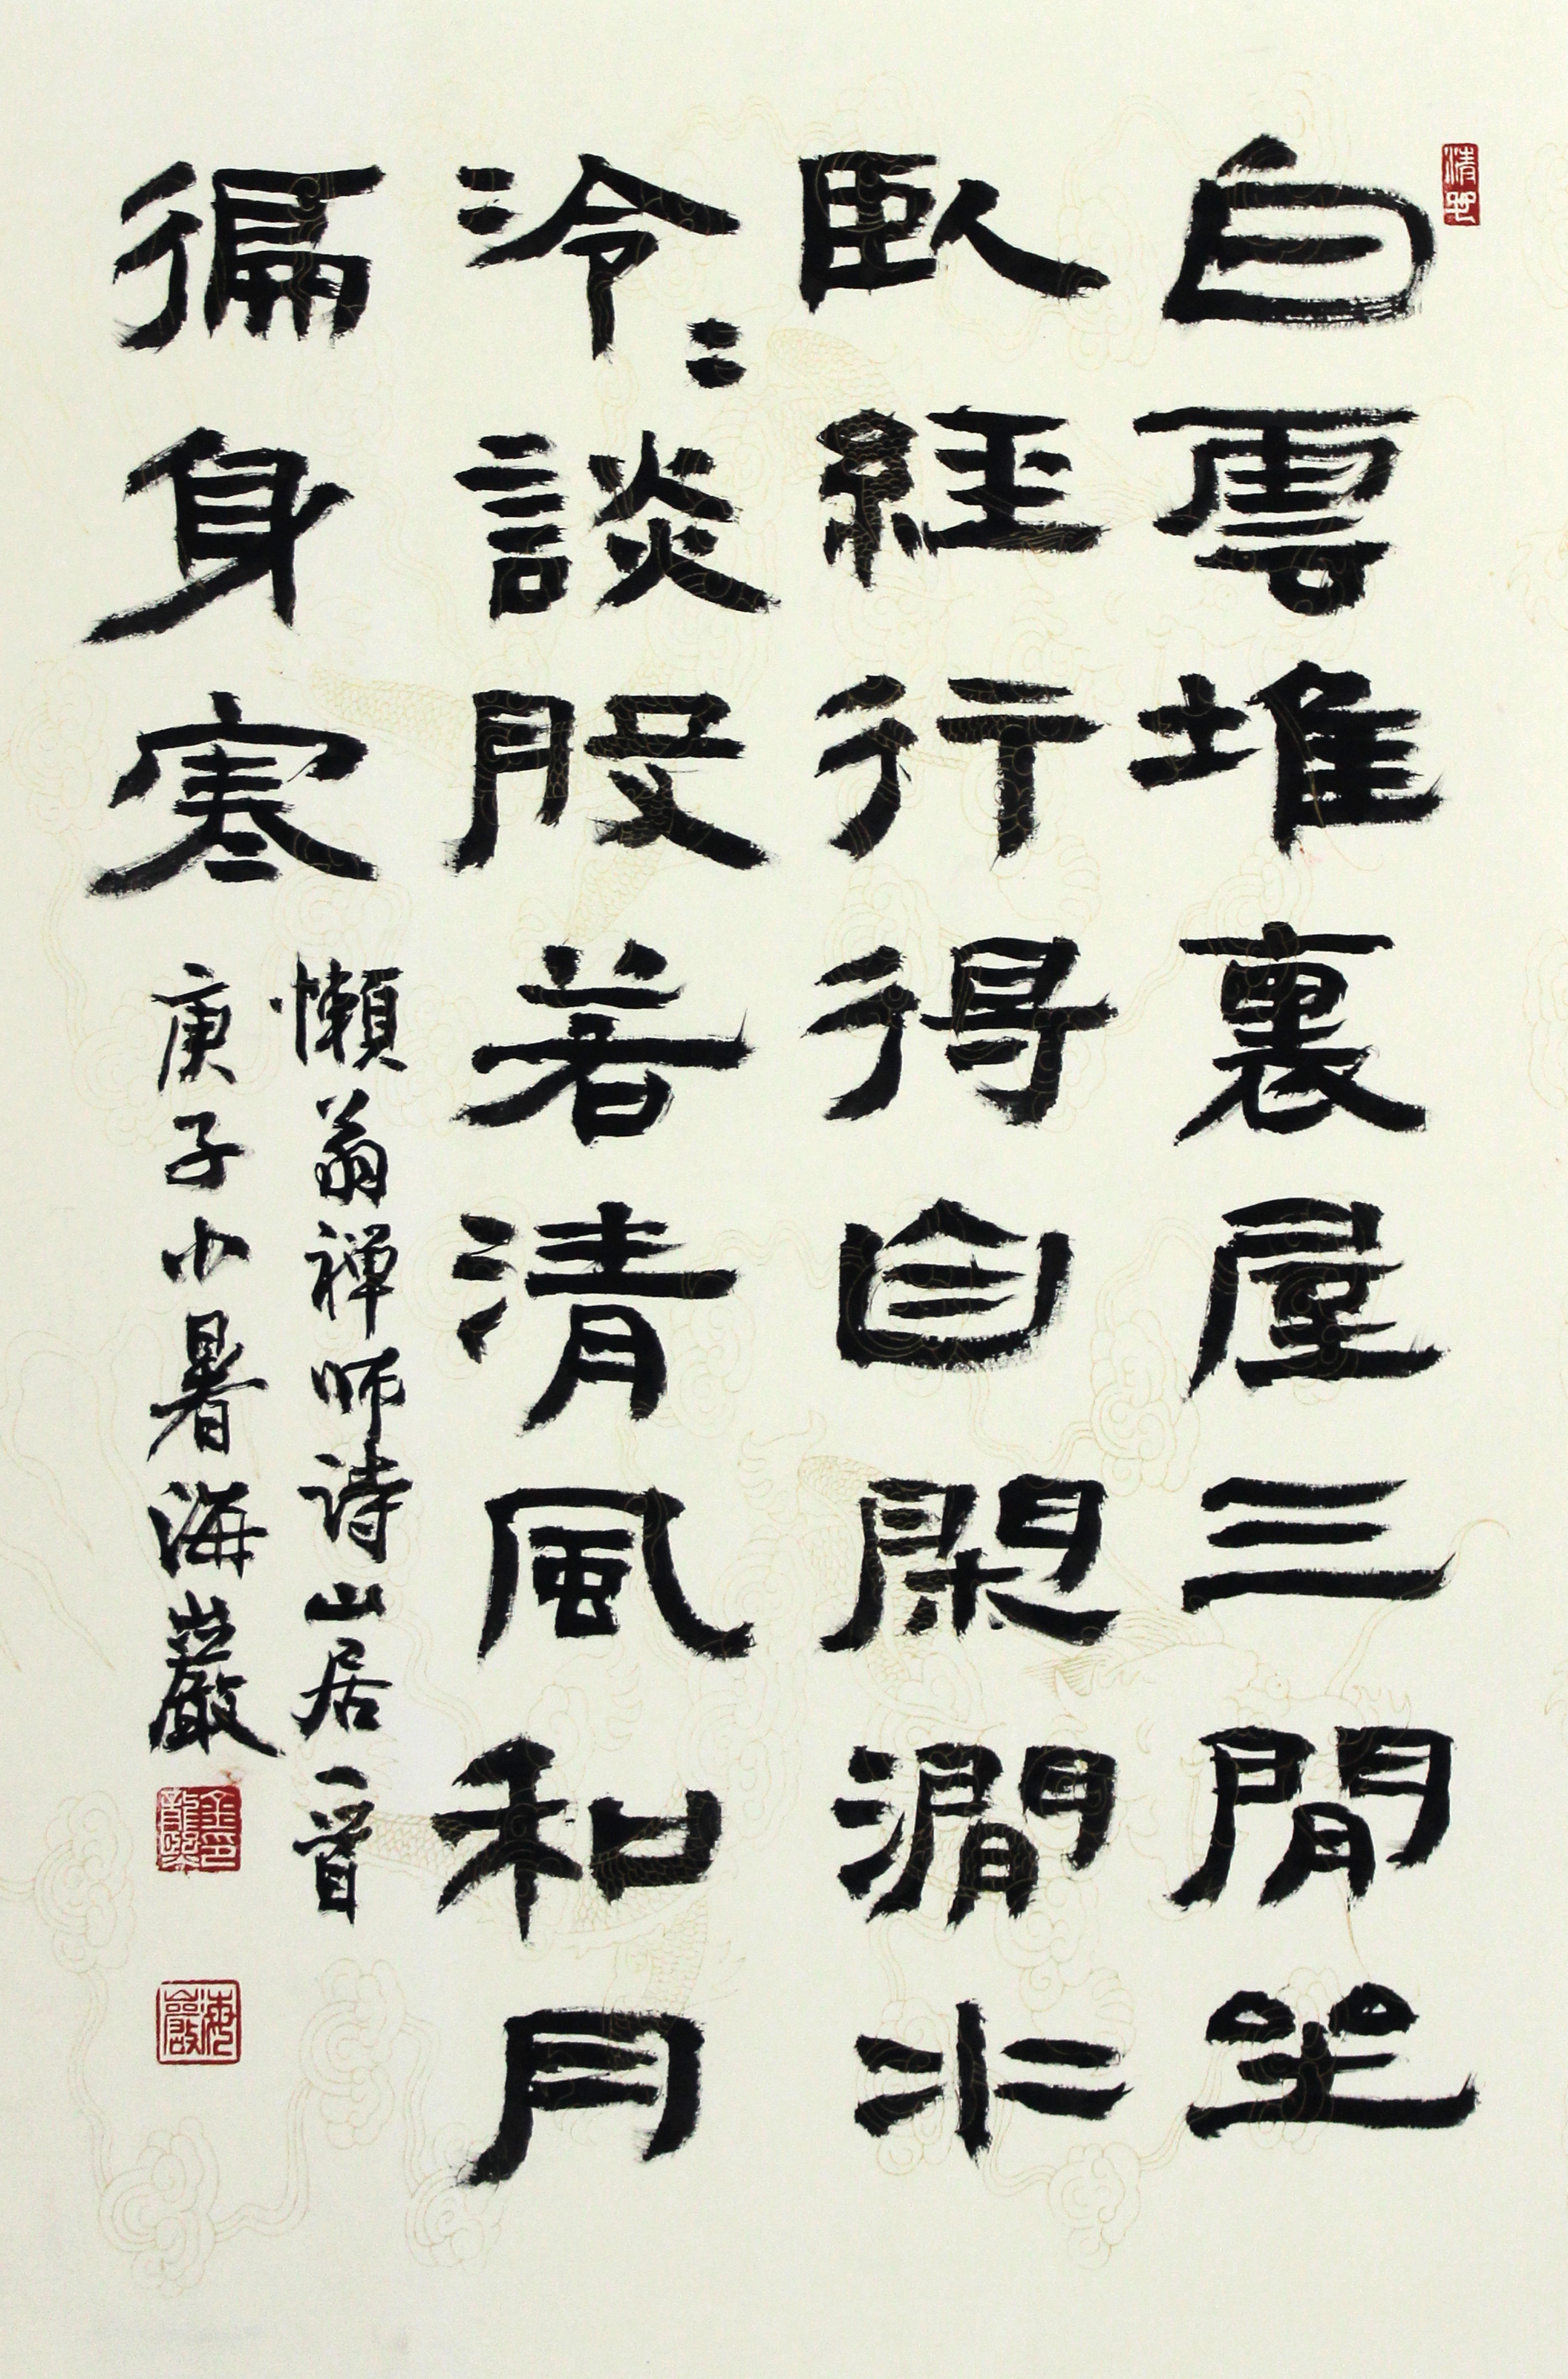 白雲堆裏屋三間坐
臥經行得自閑澗水
泠〻談股若清風和月
徧身寒
懶翁禅师詩山居一首
庚子小暑海巖